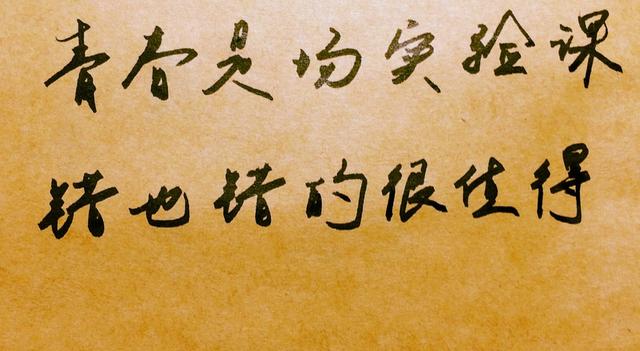 青春是场实验课
错也错的很值得